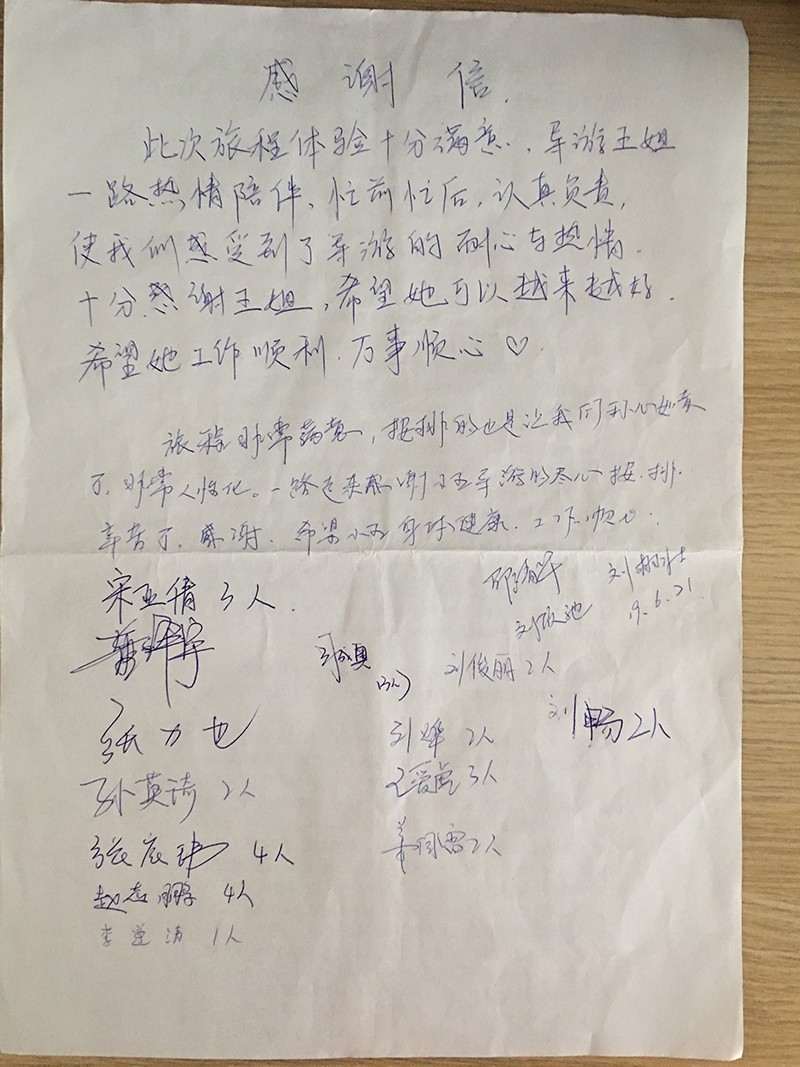 感谢信.
此次旅程体验十分满意、导游王姐
一路热情陪伴、忙前忙后,认真负责,
使我们感受到了导游的耐心与热情.
十分感谢王姐,希望她可以越来越好.
希望她工作顺利.万事顺心♡.
旅程非常满意,安排的也是让我们
了.非常人性化。一路走来感谢小王导游的尽心安排.
辛苦了.感谢.希望小王身体健康.工作顺心.
宋亚倩 3人.
刘
19.6.21.
刘俊丽 2人
刘畅 2人
张力也
刘 2人
孙英琦 2人
3人
张 4人
姜 2人
赵志鹏 4人
李 1人